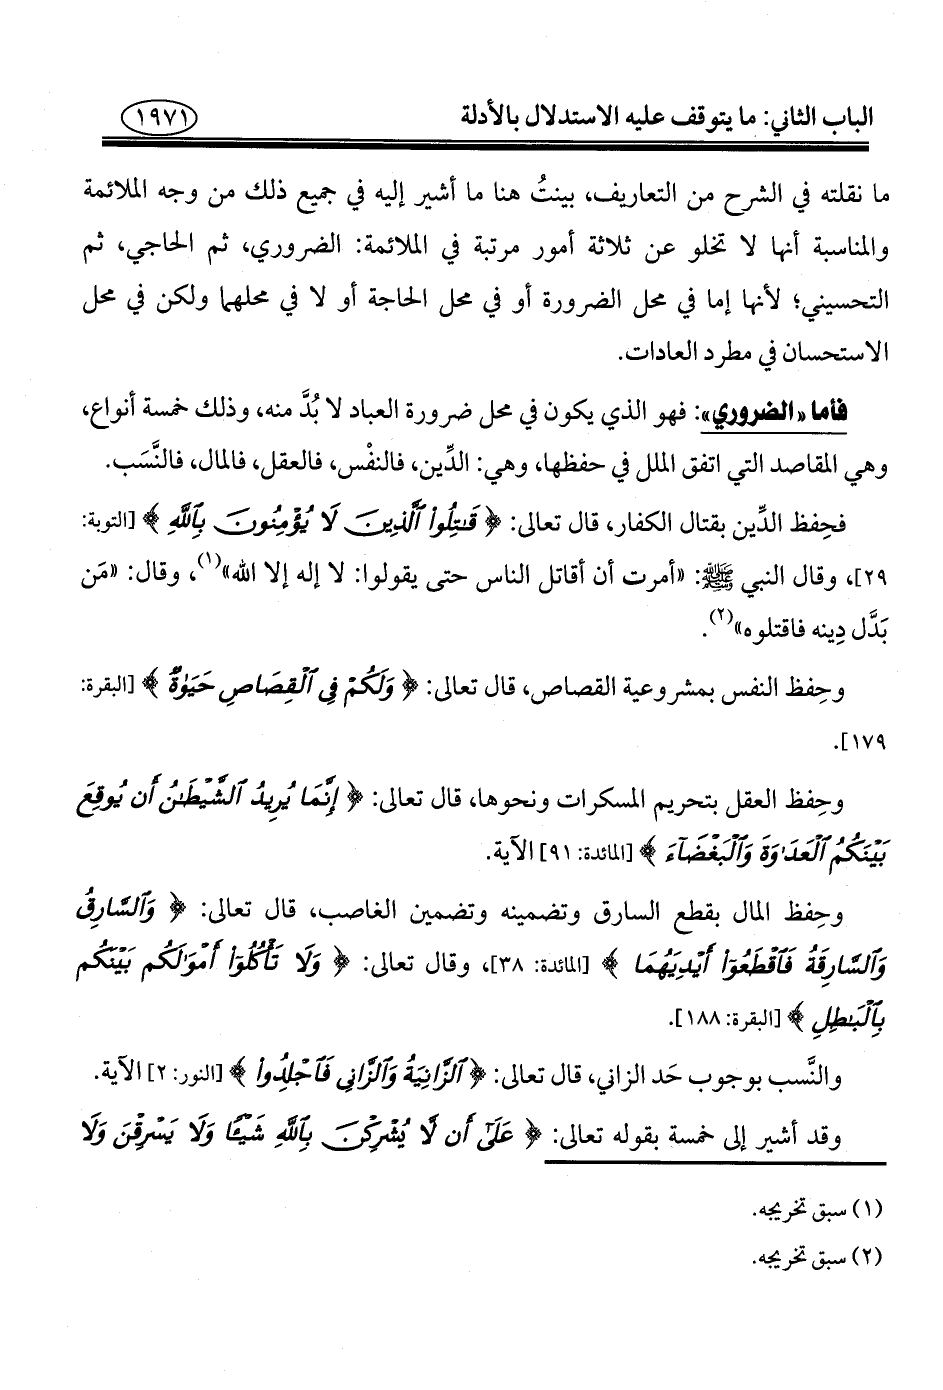 الباب الثاني: ما يتوقف عليه الاستدلال بالأدلة ١٩٧١
ما نقلته في الشرح من التعاريف، بينتُ هنا ما أشير إليه في جميع ذلك من وجه الملائمة
والمناسبة أنها لا تخلو عن ثلاثة أمور مرتبة في الملائمة: الضروري، ثم الحاجي، ثم
التحسيني؛ لأنها إما في محل الضرورة أو في محل الحاجة أو لا في محلهما ولكن في محل
الاستحسان في مطرد العادات.
فأما «الضروري»: فهو الذي يكون في محل ضرورة العباد لا بُدَّ منه، وذلك خمسة أنواع،
وهي المقاصد التي اتفق الملل في حفظها، وهي: الدِّين، فالنفْس، فالعقل، فالمال، فالنَّسَب.
فحِفظ الدِّين بقتال الكفار، قال تعالى: ﴿ قَـٰتِلُوا۟ ٱلَّذِينَ لَا يُؤْمِنُونَ بِٱللَّهِ ﴾ [التوبة:
٢٩]، وقال النبي ﷺ: «أمرت أن أقاتل الناس حتى يقولوا: لا إله إلا الله»(١)، وقال: «مَن
بَدَّل دِينه فاقتلوه»(٢).
وحِفظ النفس بمشروعية القصاص، قال تعالى: ﴿ وَلَكُمْ فِى ٱلْقِصَاصِ حَيَوٰةٌ ﴾ [البقرة:
١٧٩].
وحِفظ العقل بتحريم المسكرات ونحوها، قال تعالى: ﴿ إِنَّمَا يُرِيدُ ٱلشَّيْطَـٰنُ أَن يُوقِعَ
بَيْنَكُمُ ٱلْعَدَٰوَةَ وَٱلْبَغْضَآءَ ﴾ [المائدة: ٩١] الآية.
وحِفظ المال بقطع السارق وتضمينه وتضمين الغاصب، قال تعالى: ﴿ وَٱلسَّارِقُ
وَٱلسَّارِقَةُ فَٱقْطَعُوٓا۟ أَيْدِيَهُمَا ﴾ [المائدة: ٣٨]، وقال تعالى: ﴿ وَلَا تَأْكُلُوٓا۟ أَمْوَٰلَكُم بَيْنَكُم
بِٱلْبَـٰطِلِ ﴾ [البقرة: ١٨٨].
والنَّسب بوجوب حَد الزاني، قال تعالى: ﴿ ٱلزَّانِيَةُ وَٱلزَّانِى فَٱجْلِدُوا۟ ﴾ [النور: ٢] الآية.
وقد أشير إلى خمسة بقوله تعالى: ﴿ عَلَىٰٓ أَن لَّا يُشْرِكْنَ بِٱللَّهِ شَيْـًٔا وَلَا يَسْرِقْنَ وَلَا
(١) سبق تخريجه.
(٢) سبق تخريجه.